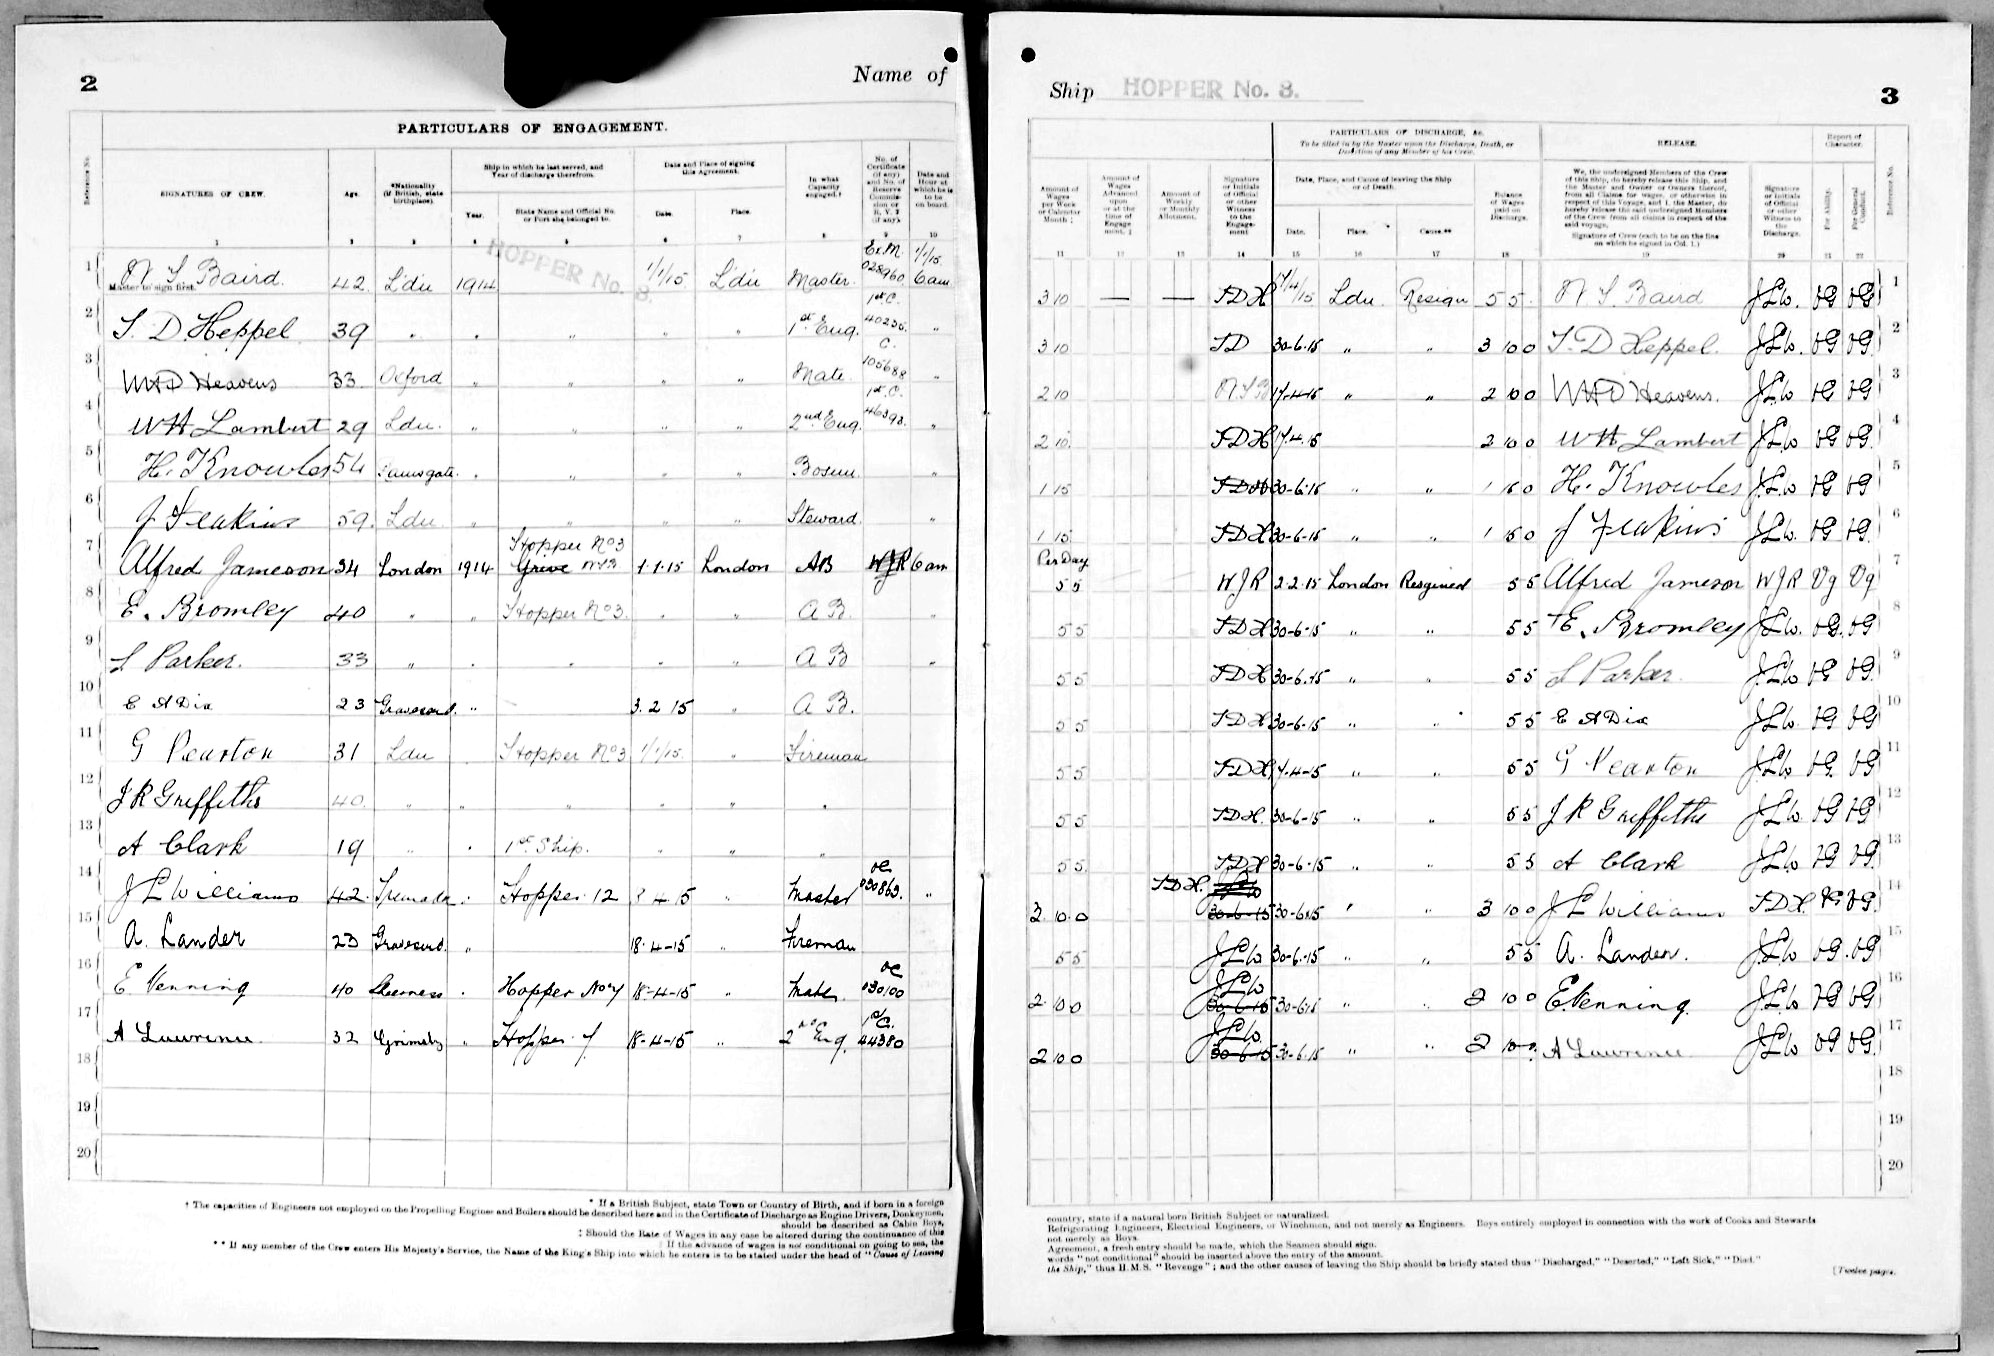 2
Name of
PARTICULARS OF ENGAGEMENT.
Reference No.
SIGNATURES OF CREW.
Age.
*Nationality (if British, state birthplace).
Ship in which he last served, and Year of discharge therefrom.
Year.
State Name and Official No. or Port she belonged to.
Date and Place of signing this Agreement.
Date.
Place.
In what Capacity engaged.†
No. of Certificate (if any) and No. of Reserve Commission or R.V.2 (if any).
Date and Hour at which he is to be on board.
1 2 3 4 5 6 7 8 9 10
HOPPER No. 8.
Master to sign first.
1 Baird. 42 Ldn 1914 1/1/15 Ldn Master. 028960 1/1/15 6 am
2 T. D. Heppel 39 " " " " " 1st Eng. 1st C. 40235. "
3 WHD Heavens 33 Oxford " " " " Mate. C. 105688 "
4 WH Lambert 29 Ldn. " " " " 2nd Eng. 1st C. 46393. "
5 H. Knowles 54 Ramsgate. " " " " Bosun. "
6 J Jeakins 59. Ldn " " " " Steward. "
7 Alfred Jameson 34 London 1914 Hopper No 3 1.1.15 London AB WJR 6 am
8 E. Bromley 40 " " Hopper No 3. " " A B. "
9 Parker. 33 " " " " " A B "
10 E A Dix 23 Gravesend. " 3.2.15 " A B.
11 G Pearton 31 Ldn " Hopper No 3 1/1/15 " Fireman
12 J R Griffiths 40. " " " " " "
13 A Clark 19 " " 1st Ship. " " "
14 J L Williams 42. " Hopper 12 4.15 " Master 030863. "
15 A. Lander 23 Gravesend. " 18-4-15 " Fireman
16 E. Venning 40 Sheerness " Hopper No 7 18-4-15 " Mate. 030100
17 A Lawrence. 32 Grimsby " Hopper 7 18-4-15 " 2nd Eng. 1st C. 44380
18
19
20
* If a British Subject, state Town or Country of Birth, and if born in a foreign
† The capacities of Engineers not employed on the Propelling Engines and Boilers should be described here and in the Certificate of Discharge as Engine Drivers, Donkeymen,
should be described as Cabin Boys,
‡ Should the Rate of Wages in any case be altered during the continuance of this
If the advance of wages is not conditional on going to sea, the
** If any member of the Crew enters His Majesty's Service, the Name of the King's Ship into which he enters is to be stated under the head of "Cause of Leaving
Ship HOPPER No. 8.
3
PARTICULARS OF DISCHARGE, &c.
To be filled in by the Master upon the Discharge, Death, or Desertion of any Member of his Crew.
RELEASE.
Report of Character.
Amount of Wages per Week or Calendar Month ‡
Amount of Wages Advanced upon or at the time of Engagement.
Amount of Weekly or Monthly Allotment.
Signature or Initials of Official or other Witness to the Engagement
Date, Place, and Cause of leaving the Ship or of Death.
Date.
Place.
Cause.**
Balance of Wages paid on Discharge.
We, the undersigned Members of the Crew of this Ship, do hereby release this Ship, and the Master and Owner or Owners thereof, from all Claims for wages, or otherwise in respect of this Voyage, and I, the Master, do hereby release the said undersigned Members of the Crew from all claims in respect of the said voyage.
Signature of Crew (each to be on the line on which he signed in Col. 1.)
Signature or Initials of Official or other Witness to the Discharge.
For Ability.
For General Conduct.
Reference No.
11 12 13 14 15 16 17 18 19 20 21 22
3 10 — — TDH 17/4/15 Ldn. Resign 5 5 Baird JLW. VG VG 1
3 10 TD 30-6-15 " " 3 10 0 T. D Heppel. JLW. VG VG 2
2 10 17-4-15 " " 2 10 0 WHD Heavens. JLW VG VG 3
2 10. TDH 17.4.15 2 10 0 WH Lambert JLW VG VG. 4
1 15 TDH 30-6-15 " " 1 15 0 H. Knowles JLW VG VG 5
1 15. TDH 30-6-15 " " 1 15 0 J Jeakins JLW VG VG. 6
Per Day
5 5 WJR 2.2.15 London Resgined 5 5 Alfred Jameson WJR Vg Vg 7
5 5 TDH 30-6-15 " " 5 5 E. Bromley JLW. VG. VG 8
5 5 TDH 30-6-15 " " 5 5 Parker. JLW. VG VG 9
5 5 TDH 30-6-15 " " 5 5 E A Dix JLW. VG VG 10
5 5 TDH 17-4-15 " " 5 5 G Pearton JLW VG. VG 11
5 5 TDH. 30-6-15 " " 5 5 J R Griffiths JLW. VG VG 12
5 5. TDH 30-6-15 " " 5 5 A Clark JLW VG VG. 13
2 10 0 TDH. 30-6-15 30-6-15 " " 3 10 0 J L Williams TDH. VG VG. 14
5 5 JLW 30-6-15 " " 5 5 A. Lander. JLW VG. VG. 15
2 10 0 JLW 30-6-15 30-6-15 " " 2 10 0 E Venning. JLW VG VG 16
2 10 0 JLW. 30-6-15 30-6-15 " " 2 10 0. A Lawrence JLW VG VG. 17
18
19
20
country, state if a natural born British Subject or naturalized.
Refrigerating Engineers, Electrical Engineers, or Winchmen, and not merely as Engineers. Boys entirely employed in connection with the work of Cooks and Stewards
not merely as Boys.
Agreement, a fresh entry should be made, which the Seamen should sign.
words "not conditional" should be inserted above the entry of the amount.
the Ship," thus H.M.S. "Revenge"; and the other causes of leaving the Ship should be briefly stated thus "Discharged," "Deserted," "Left Sick," "Died."
[Twelve pages.